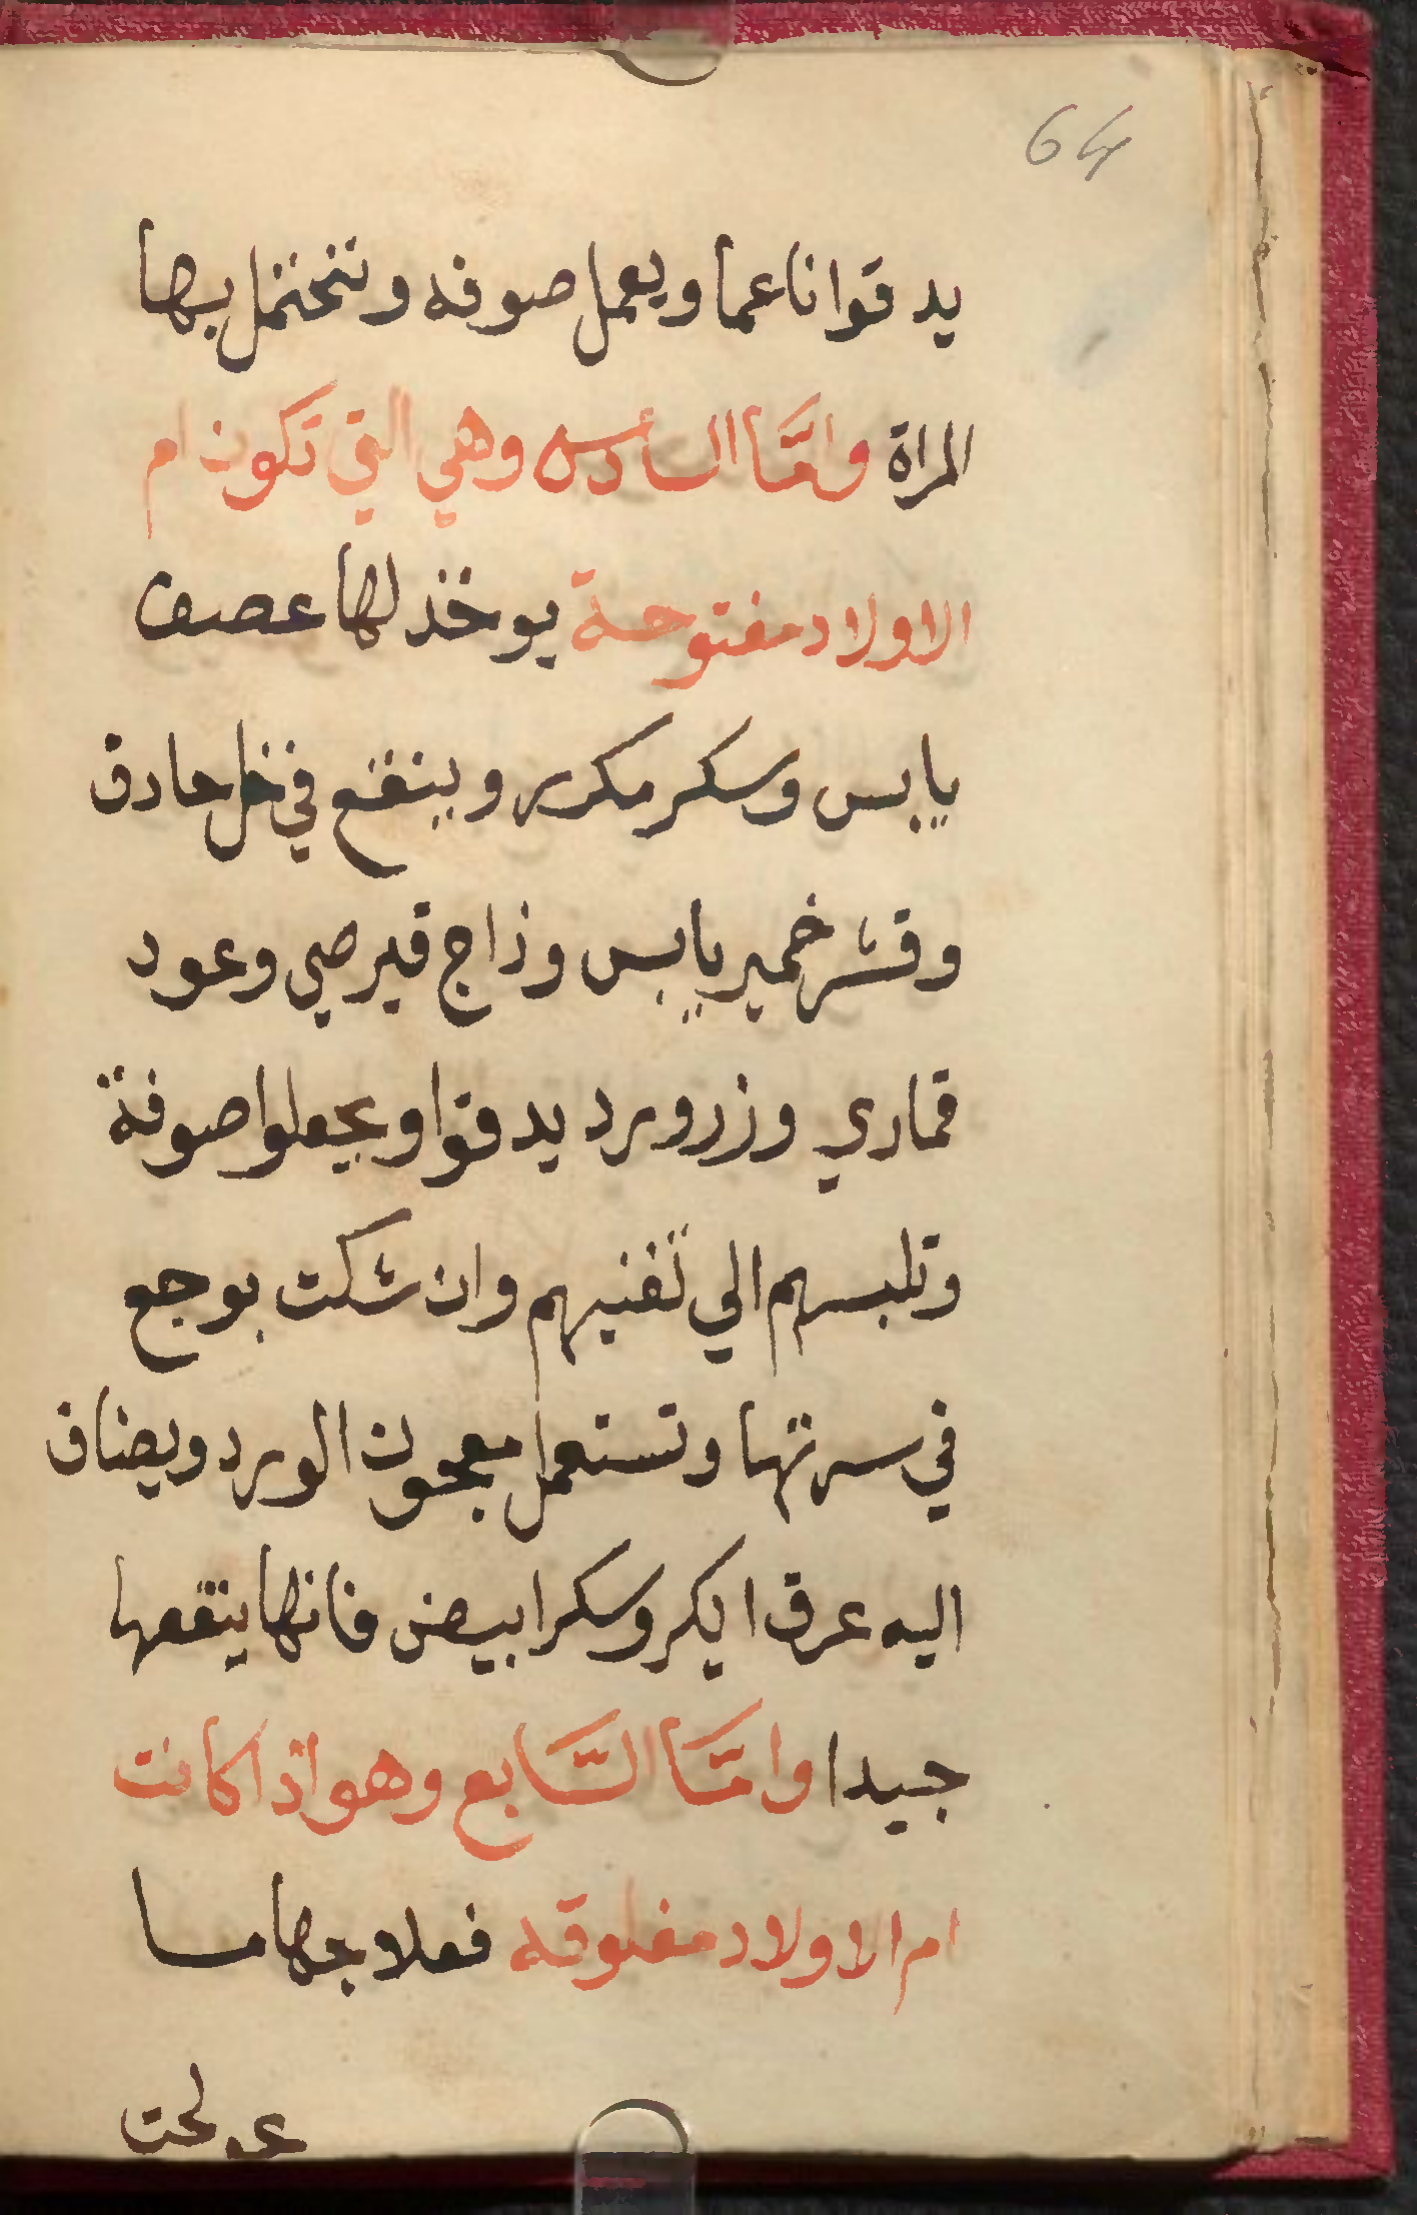 64
يدقوا ناعما ويعمل صوفه وتتحتمل بها
المراة وامّا السأدس وهي التي تكون ام
الاولاد مفتوحة يوخذ لها عصف
يابس وسكر مكرر وينقع في خل حادق
وقشر خمير يابس وزاج قبرصي وعود
قماري وزرورد يدقوا ويجعلوا صوفة
وتلبسهم الي تفنيهم وان شكت بوجع
في سرتها وتستعمل معجون الورد ويضاف
اليه عرق ايكر وسكر ابيض فانها ينفعها
جيدا وامّا السّابع وهو اذا كانت
ام الاولاد مفلوقه فعلاجها مسا
عولحت